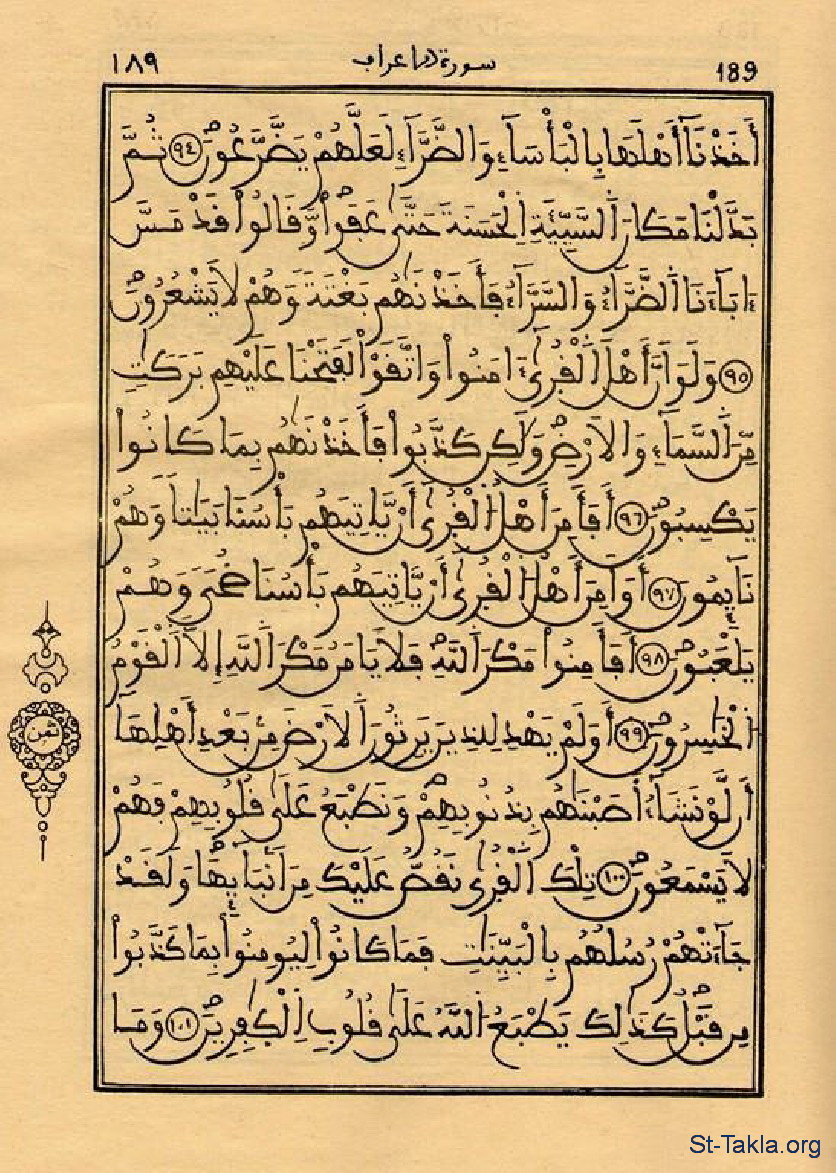 189 سورة الاعراف ١٨٩
أَخَذْنَآ أَهْلَهَا بِالْبَأْسَآءِ وَالضَّرَّآءِ لَعَلَّهُمْ يَضَّرَّعُونَ ٩٤ ثُمَّ
بَدَّلْنَا مَكَانَ السَّيِّئَةِ الْحَسَنَةَ حَتَّىٰ عَفَواْ وَّقَالُواْ قَدْ مَسَّ
ءَابَآءَنَا الضَّرَّآءُ وَالسَّرَّآءُ فَأَخَذْنَٰهُم بَغْتَةً وَهُمْ لَا يَشْعُرُونَ
٩٥ وَلَوَ اَنَّ أَهْلَ الْقُرَىٰٓ ءَامَنُواْ وَاتَّقَوْاْ لَفَتَحْنَا عَلَيْهِم بَرَكَٰتٍ
مِّنَ السَّمَآءِ وَالاَرْضِ وَلَٰكِن كَذَّبُواْ فَأَخَذْنَٰهُم بِمَا كَانُواْ
يَكْسِبُونَ ٩٦ أَفَأَمِنَ أَهْلُ الْقُرَىٰٓ أَنْ يَّاتِيَهُم بَأْسُنَا بَيَٰتاً وَهُمْ
نَآئِمُونَ ٩٧ أَوَ امِنَ أَهْلُ الْقُرَىٰٓ أَنْ يَّاتِيَهُم بَأْسُنَا ضُحىً وَهُمْ
يَلْعَبُونَ ٩٨ أَفَأَمِنُواْ مَكْرَ اللَّهِ فَلَا يَامَنُ مَكْرَ اللَّهِ إِلَّا الْقَوْمُ
الْخَٰسِرُونَ ٩٩ أَوَلَمْ يَهْدِ لِلذِينَ يَرِثُونَ الاَرْضَ مِنۢ بَعْدِ أَهْلِهَآ
ثمن
أَن لَّوْ نَشَآءُ أَصَبْنَٰهُم بِذُنُوبِهِمْ وَنَطْبَعُ عَلَىٰ قُلُوبِهِمْ فَهُمْ
لَا يَسْمَعُونَ ١٠٠ تِلْكَ الْقُرَىٰ نَقُصُّ عَلَيْكَ مِنَ اَنۢبَآئِهَا وَلَقَدْ
جَآءَتْهُمْ رُسُلُهُم بِالْبَيِّنَٰتِ فَمَا كَانُواْ لِيُومِنُواْ بِمَا كَذَّبُواْ
مِن قَبْلُ كَذَٰلِكَ يَطْبَعُ اللَّهُ عَلَىٰ قُلُوبِ الْكَٰفِرِينَ ١٠١ وَمَا
St-Takla.org